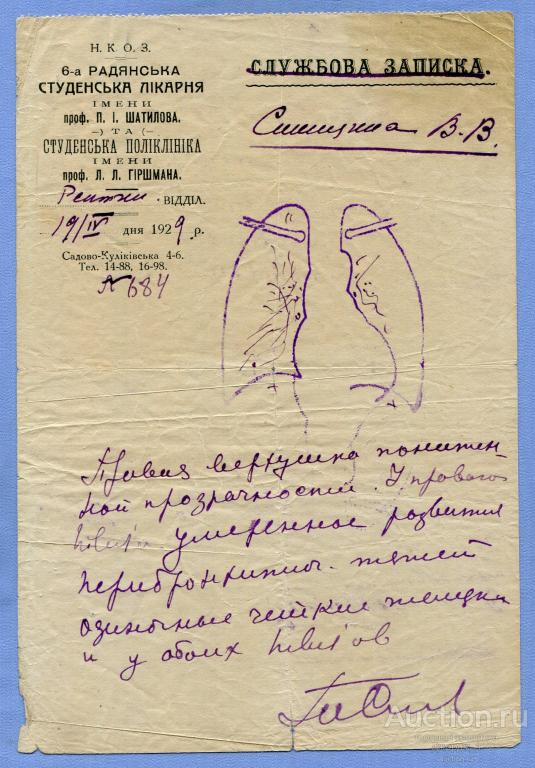 Н. К. О. З.
6-а РАДЯНСЬКА
СТУДЕНСЬКА ЛІКАРНЯ
ІМЕНИ
проф. П. І. ШАТИЛОВА.
—) ТА (—
СТУДЕНСЬКА ПОЛІКЛІНІКА
ІМЕНИ
проф. Л. Л. ГІРШМАНА.
Рентген ВІДДІЛ.
19/IV дня 1929 р.
Садово-Куліківська 4-6.
Тел. 14-88, 16-98.
№ 684
СЛУЖБОВА ЗАПИСКА.
В. В.
Правая верхушка понижен-
ной прозрачности. У правого
hilus'a умеренное развитие
перибронхиальн. тяжей
одиночные четкие
и у обоих hilus'ов
Auction.ru